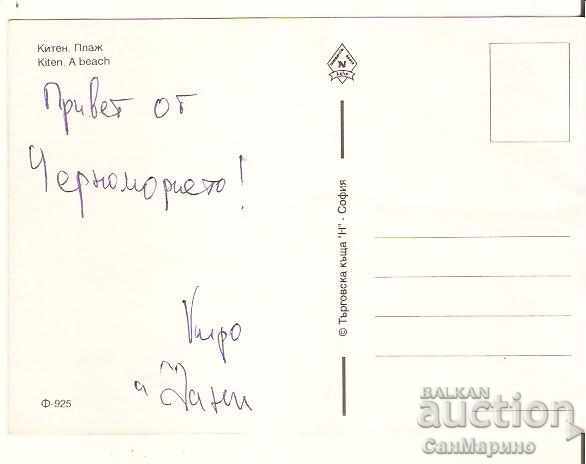 Китен. Плаж
Kiten. A beach
Привет от
Черноморието!
Киро
и Жани
Ф-925
N
© Търговска къща "Н" - София
BALKAN
auction
СанМарино